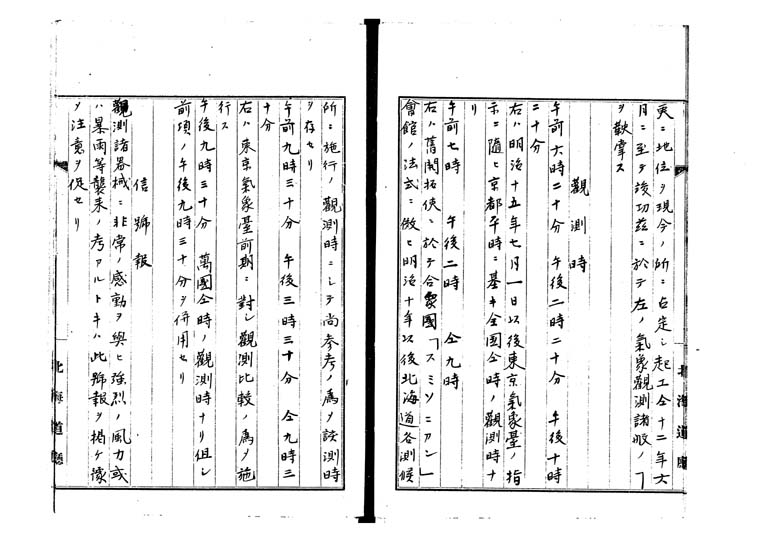 更ニ地位ヲ現今ノ所ニ占定シ起工仝十二年六
月ニ至テ竣功茲ニ於テ左ノ氣象觀測諸般ノ
ヲ執掌ス
觀測時
午前六時二十分 午後二時二十分 午後十時
二十分
右ハ明治十五年七月一日以後東京氣象臺ノ指
示ニ隨ヒ京都平時ニ基キ全國仝時ノ觀測時ナ
リ
午前七時 午後二時 仝九時
右ハ舊開拓使ニ於テ合衆國「スミソニアン」
會館ノ法式ニ倣ヒ明治十年以後北海道各測候
所ニ施行ノ觀測時ニシテ尚参考ノ爲メ該測時
ヲ存セリ
午前九時三十分 午後三時三十分 仝九時三
十分
右ハ東京氣象臺前期ニ對シ觀測比較ノ爲メ施
行ス
午後九時三十分 萬國仝時ノ觀測時ナリ但シ
前項ノ午後九時三十分ヲ併用セリ
信號報
觀測諸器械ニ非常ノ感動ヲ與ヒ強烈ノ風力或
ハ暴雨等襲来ノ考アルトキハ此號報ヲ揭ケ豫
メ注意ヲ促セリ
北海道廳
北海道廳